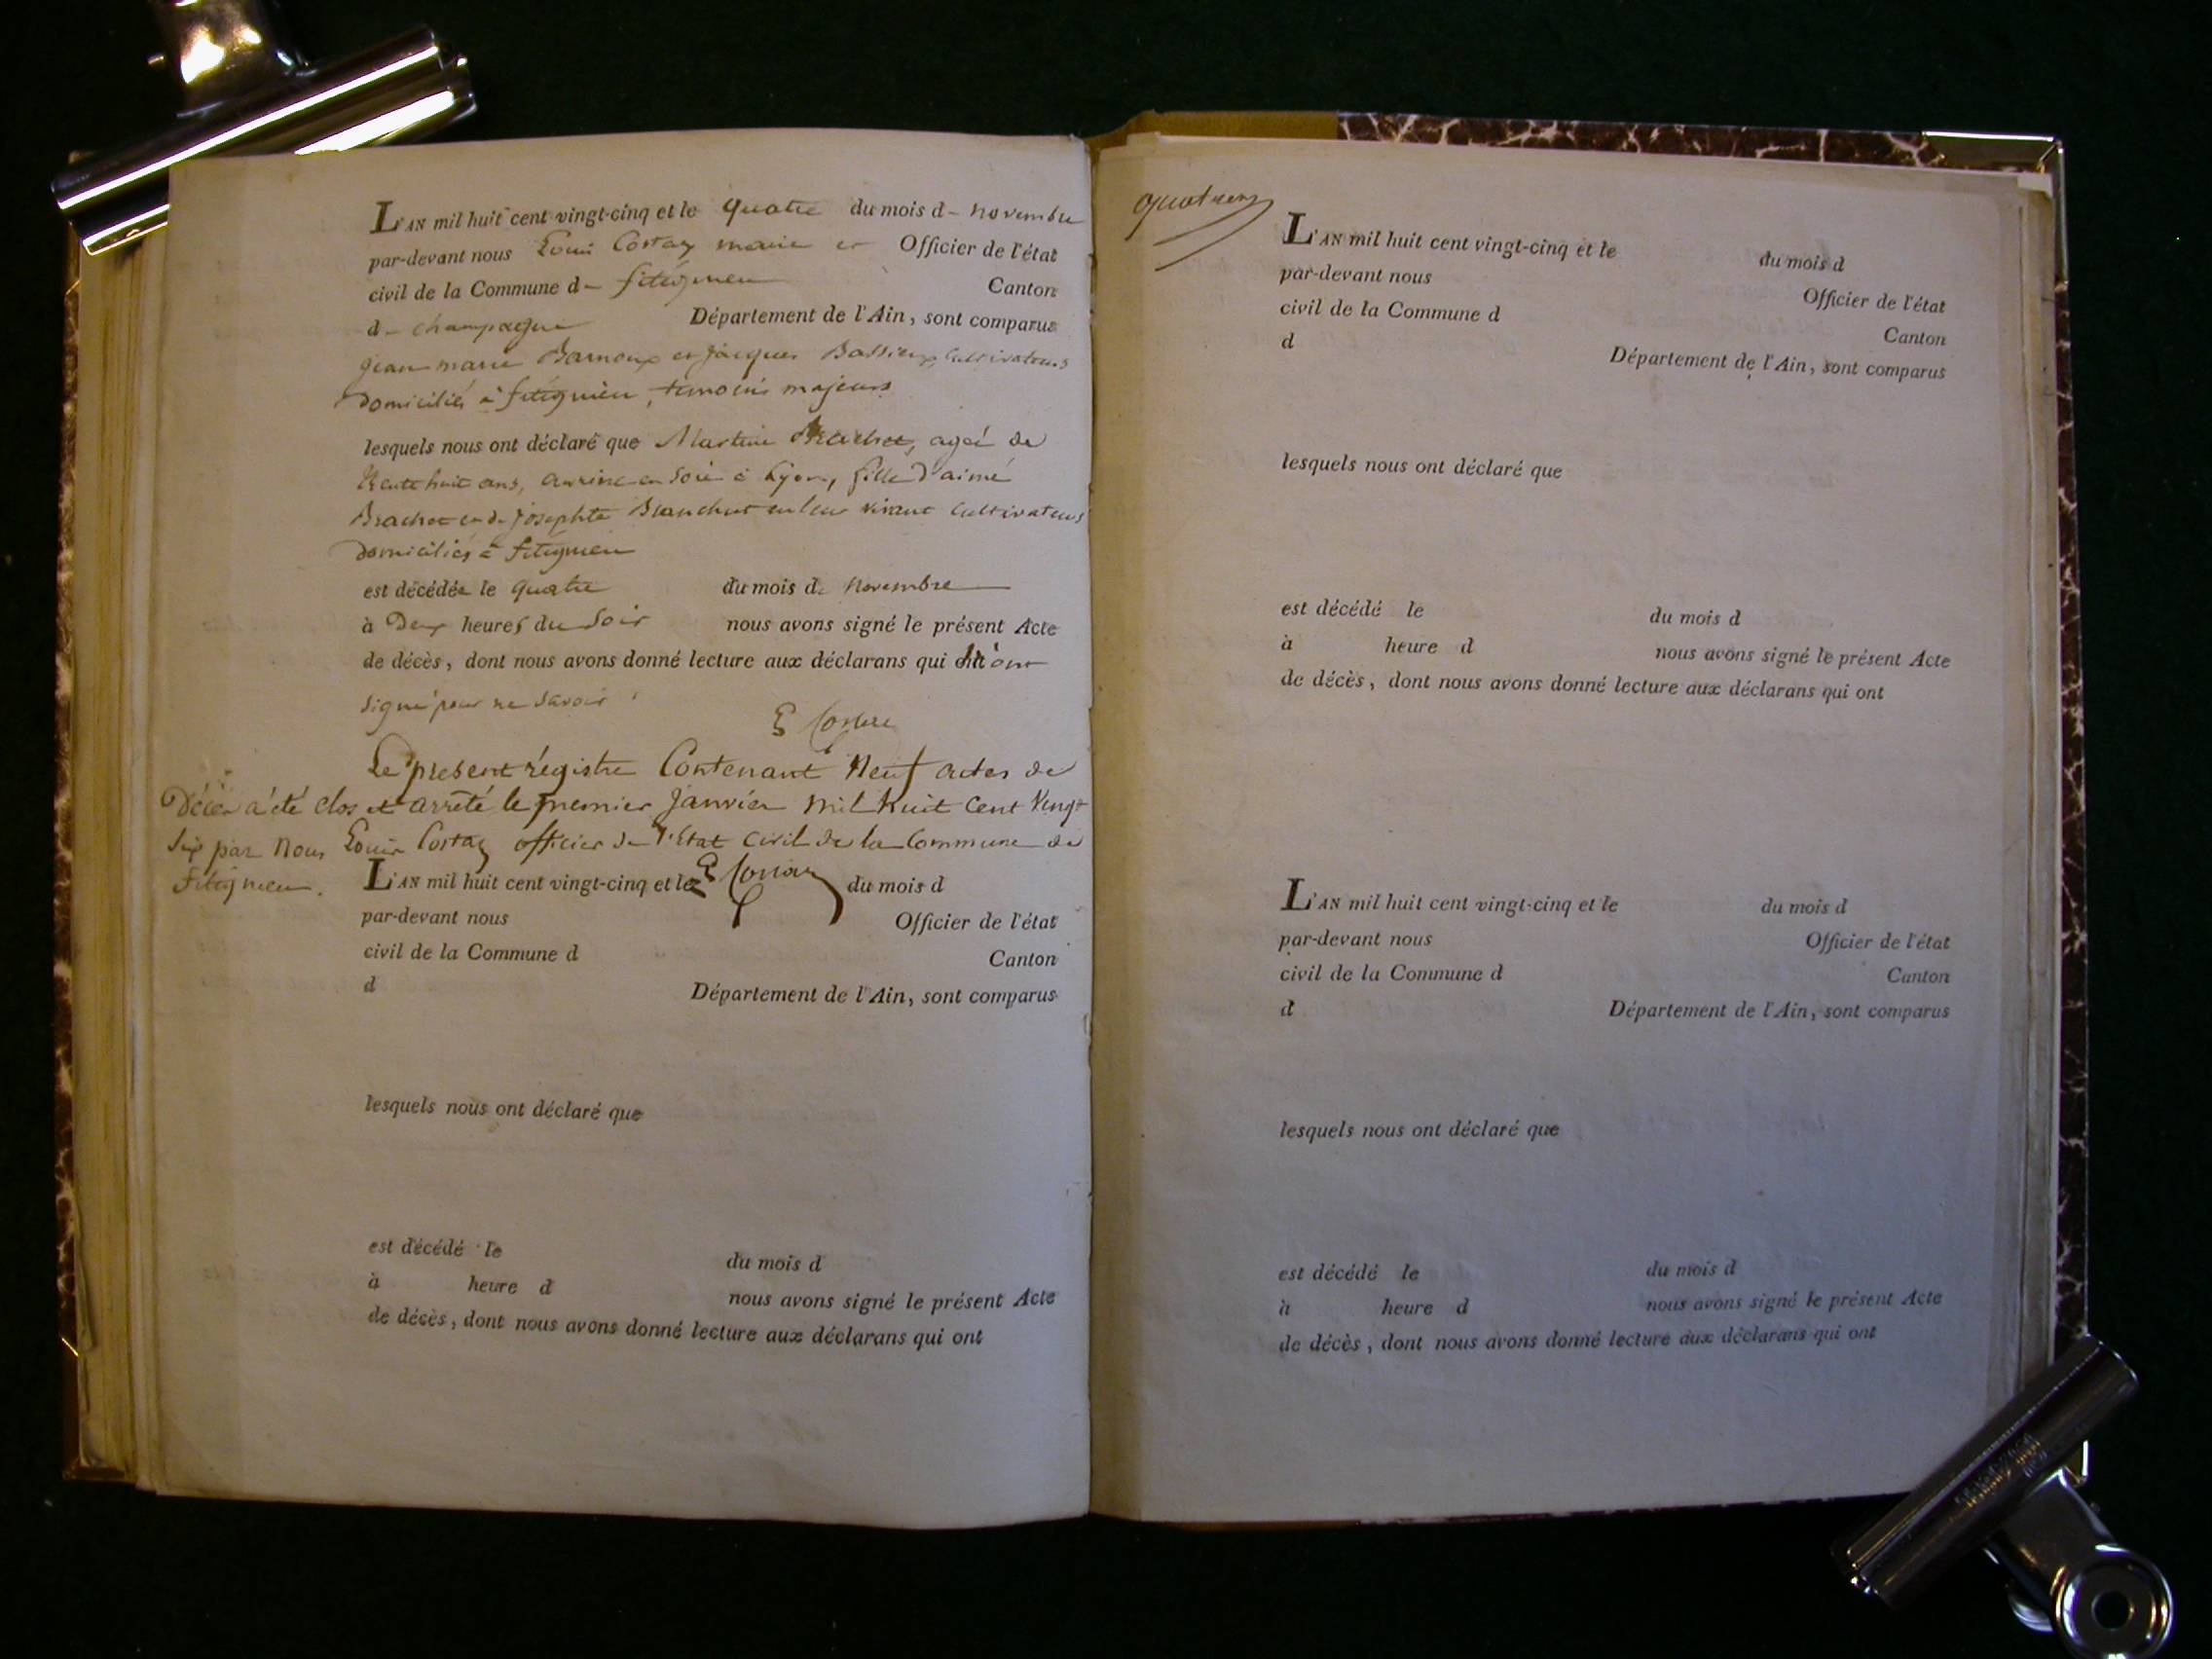 L'AN mil huit cent vingt-cinq et le quatre du mois de novembre
par-devant nous Louis Costaz maire et Officier de l'état
civil de la Commune de fitignieu Canton
de champagne Département de l'Ain, sont comparus
jean marie et jacques Bassieux, cultivateurs
domiciliés à fitignieu, temoins majeurs
lesquels nous ont déclaré que Brachet, agée de
trente huit ans, en soie à Lyon, fille d'aimé
Brachet et de josephte Blanchet en leur vivant cultivateurs
domiciliés à fitignieu
est décédée le quatre du mois de novembre
à Deux heures du soir nous avons signé le présent Acte
de décès, dont nous avons donné lecture aux déclarans qui n'ont
signé pour ne savoir
L Costaz
Le present régistre Contenant Neuf actes de
Décès a été clos et arrêté le premier janvier mil huit cent vingt
six par nous Louis Costaz officier de l'état civil de la Commune de
fitignieu.
L Costaz
L'AN mil huit cent vingt-cinq et le du mois d
par-devant nous Officier de l'état
civil de la Commune d Canton
d Département de l'Ain, sont comparus
lesquels nous ont déclaré que
est décédé le du mois d
à heure d nous avons signé le présent Acte
de décès, dont nous avons donné lecture aux déclarans qui ont
L'AN mil huit cent vingt-cinq et le du mois d
par-devant nous Officier de l'état
civil de la Commune d Canton
d Département de l'Ain, sont comparus
lesquels nous ont déclaré que
est décédé le du mois d
à heure d nous avons signé le présent Acte
de décès, dont nous avons donné lecture aux déclarans qui ont
L'AN mil huit cent vingt-cinq et le du mois d
par-devant nous Officier de l'état
civil de la Commune d Canton
d Département de l'Ain, sont comparus
lesquels nous ont déclaré que
est décédé le du mois d
à heure d nous avons signé le présent Acte
de décès, dont nous avons donné lecture aux déclarans qui ont